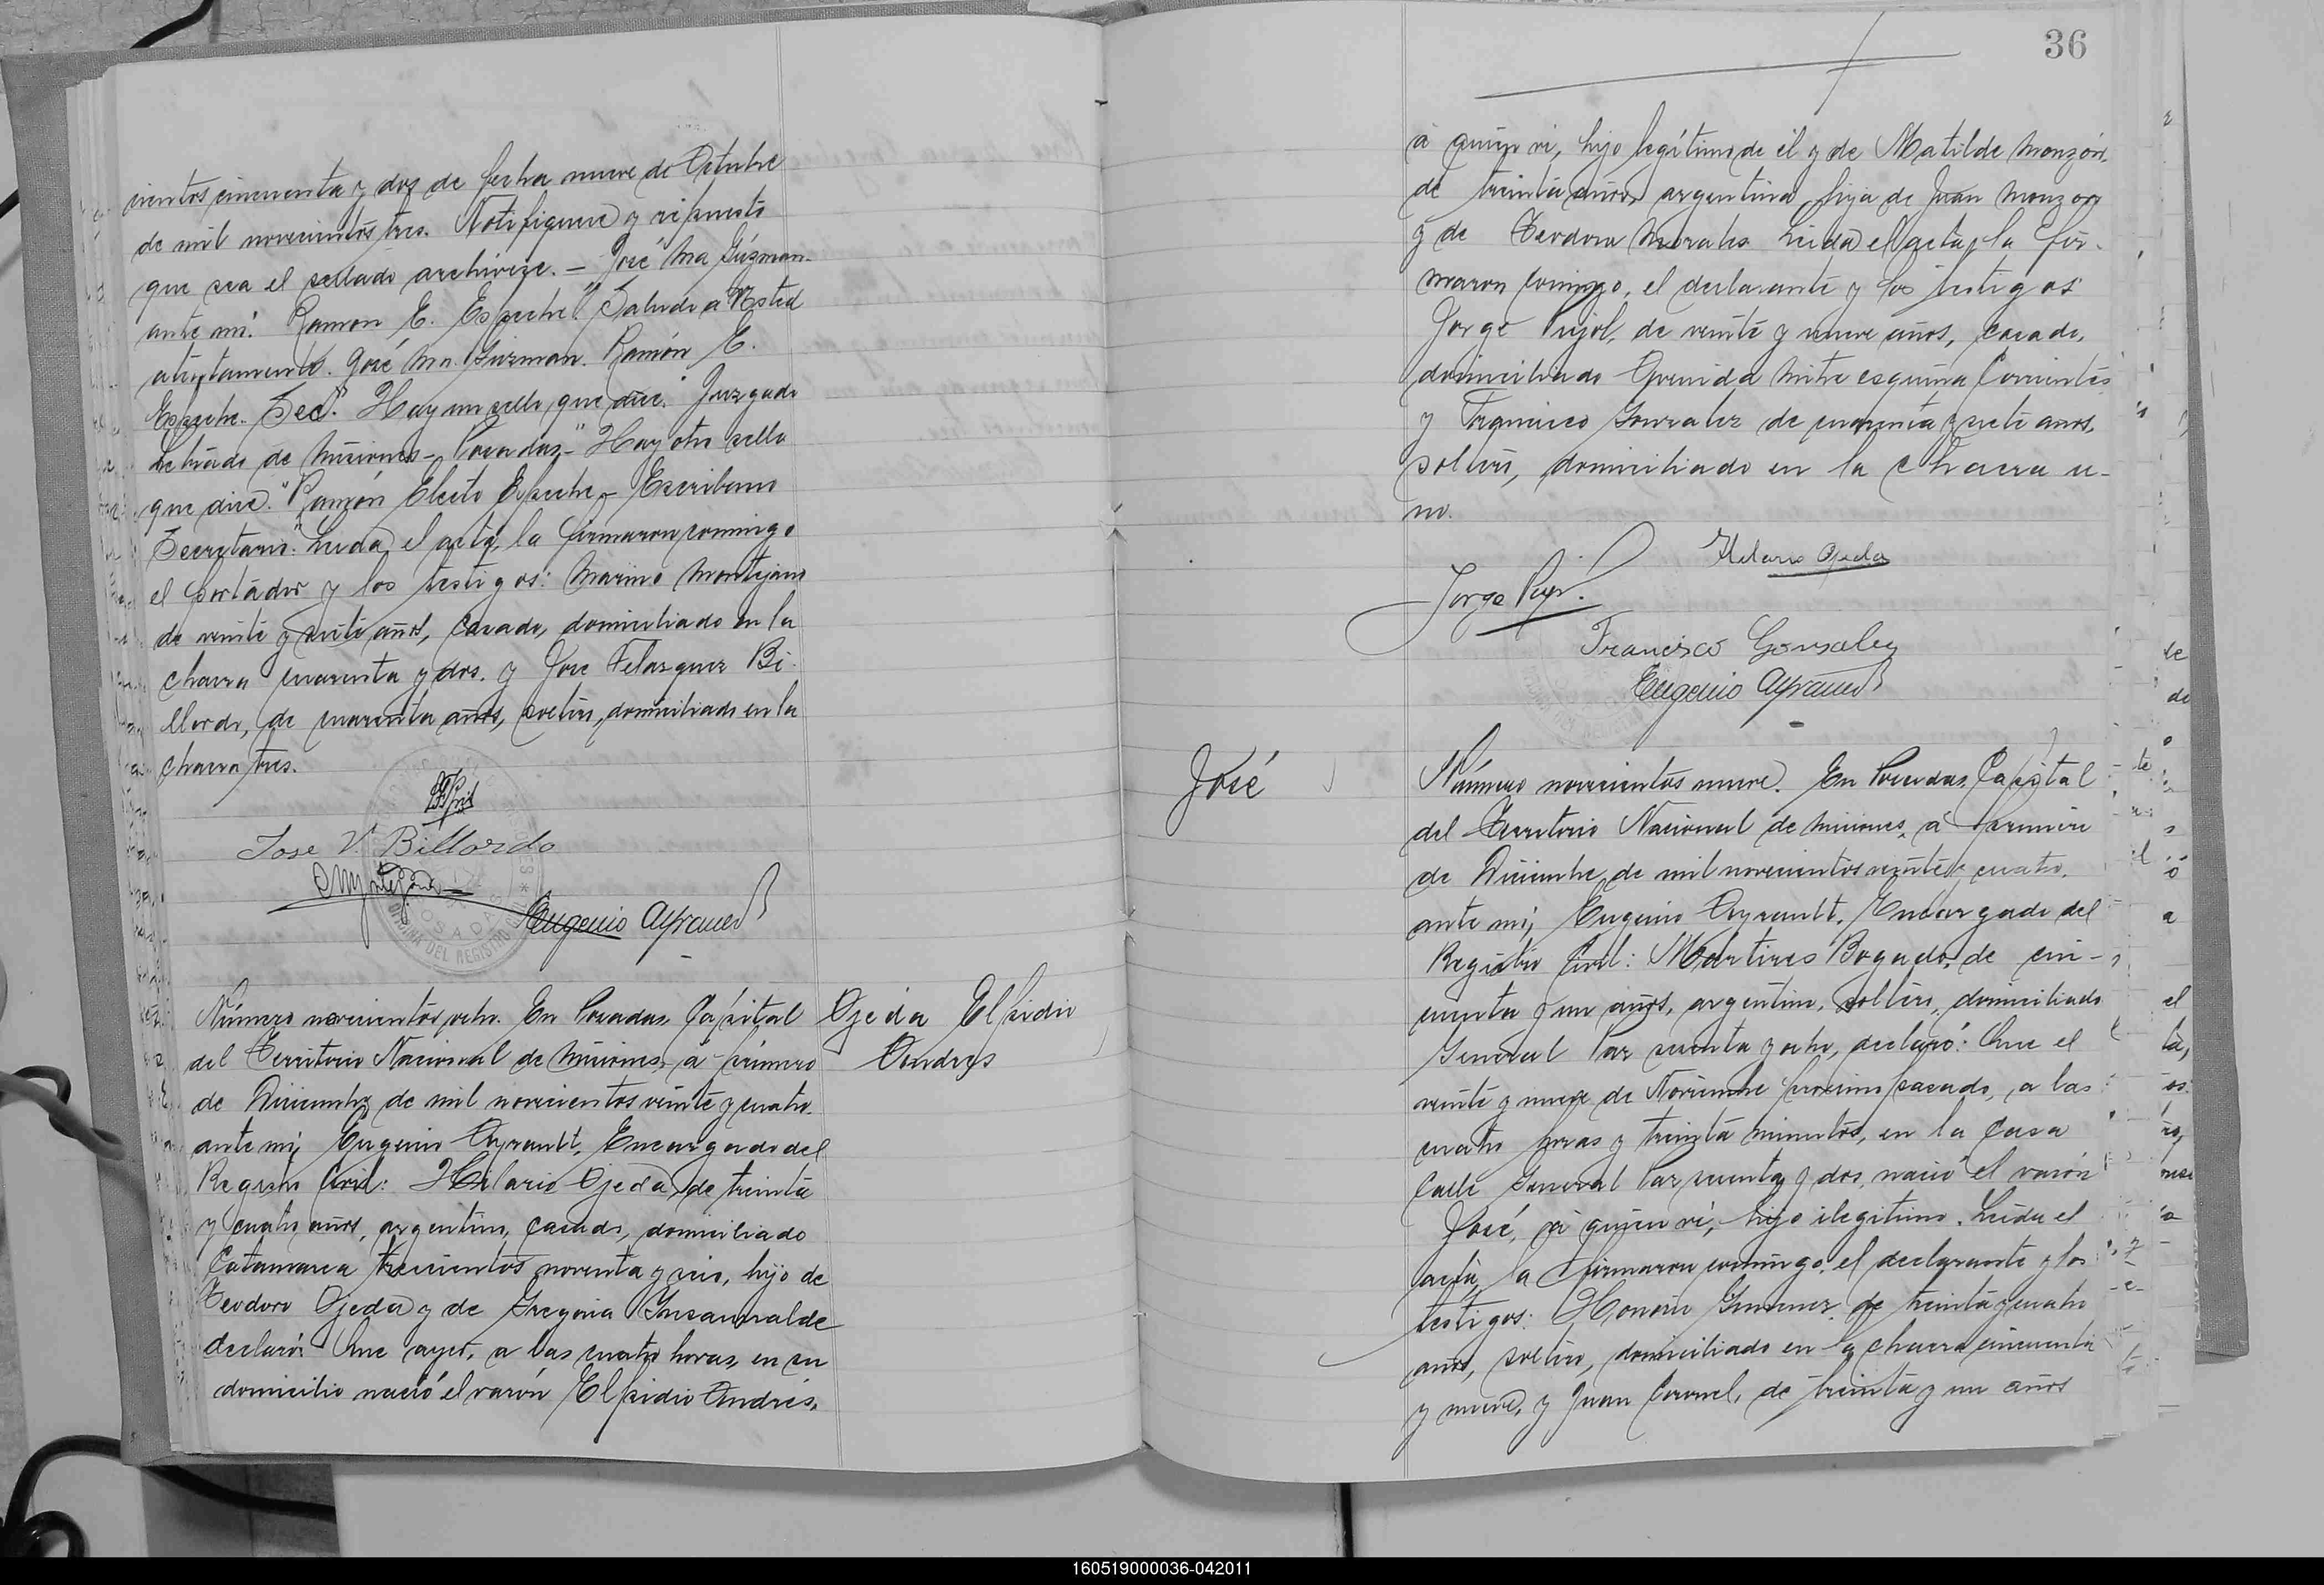 cientos cincuenta y dos de fecha nueve de Octubre
de mil novecientos tres. Notifíquese y repuesto
que sea el sellado archívese. – José Ma Guzman.
ante mi: Ramon E. Espeche." Saludo a Usted
atentamente. José Ma. Guzman. Ramón E.
Espeche. Sec." Hay un sello que dice: "Juzgado
Letrado de Misiones – Posadas." Hay otro sello
que dice: "Ramón Electo Espeche – Escribano
Secretario." Leida el acta, la firmaron conmigo
el portador y los testigos: Marino Montejano
de veinte y siete años, casado, domiciliado en la
chacra cuarenta y dos. y Jose Velazquez Bi-
llordo, de cuarenta años, soltero, domiciliado en la
chacra tres.
Jose V. Billordo
Eugenio Ayrault
Número novecientos ocho. En Posadas, Capital
del Territorio Nacional de Misiones, á primero
de Diciembre de mil novecientos veinte y cuatro.
ante mi, Eugenio Ayrault, Encargado del
Registro Civil: Hilario Ojeda, de treinta
y cuatro años, argentino, casado, domiciliado
Catamarca trescientos noventa y seis, hijo de
Teodoro Ojeda y de Gregoria Insaurralde
declaró: Que ayer, a las cuatro horas, en su
domicilio nació el varón Elpidio Andrés,
Ojeda Elpidio
Andres
36
á quien vi, hijo legítimo de él y de Matilde Monzón,
de treinta años, argentina, hija de Juan Monzon
y de Teodora Morales. Leida el acta, la fir-
maron conmigo, el declarante y los testigos
Jorge Pujol, de veinte y nueve años, casado,
domiciliado Avenida Mitre esquina Corrientes
y Francisco Gonzalez de cuarenta y siete años,
soltero, domiciliado en la chacra u-
no.
Hilario Ojeda
Jorge Pujol
Francisco Gonzalez
Eugenio Ayrault
José
Número novecientos nueve. En Posadas, Capital
del Territorio Nacional de Misiones, á primero
de Diciembre, de mil novecientos veinte y cuatro.
ante mi, Eugenio Ayrault, Encargado del
Registro Civil: Martires Bogado, de cin-
cuenta y un años, argentino, soltero, domiciliado
General Paz sesenta y ocho, declaró: Que el
veinte y nueve de Noviembre próximo pasado, a las
cuatro horas y treinta minutos, en la casa
calle General Paz sesenta y dos, nació el varón
José, á quien vi, hijo ilegítimo. Leida el
acta, la firmaron conmigo, el declarante y los
testigos: Honorio Gimenez, de treinta y cuatro
años, soltero, domiciliado en la chacra cincuenta
y nueve, y Juan Coronel, de treinta y un años
160519000036-042011